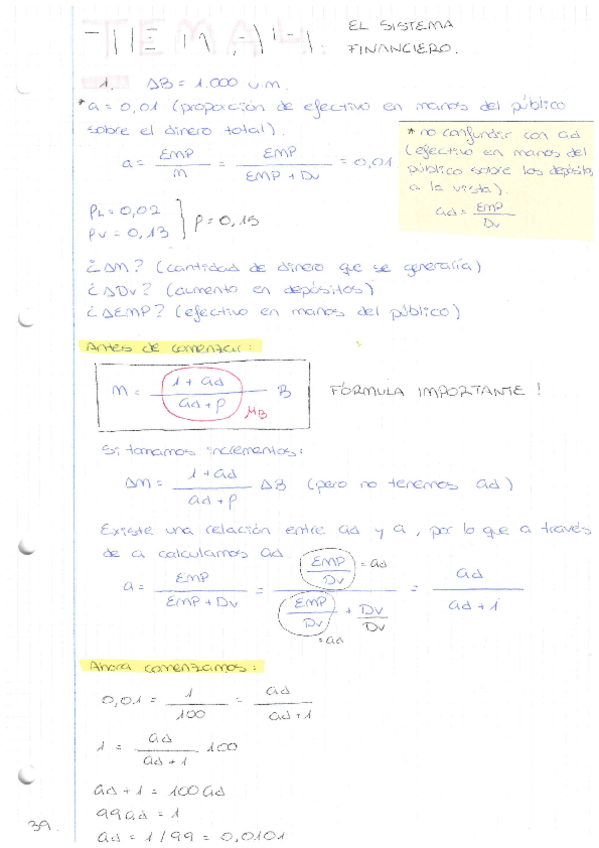 TEMA 4: EL SISTEMA
FINANCIERO.
1. ΔB = 1.000 u.m.
* a = 0,01 (proporción de efectivo en manos del público
sobre el dinero total).
a = EMP / M = EMP / EMP + Dv = 0,01
* no confundir con ad
(efectivo en manos del
público sobre los depósitos
a la vista).
ad = EMP / Dv
ρL = 0,02
ρv = 0,13 } ρ = 0,15
¿ΔM? (cantidad de dinero que se generaría)
¿ΔDv? (aumento en depósitos)
¿ΔEMP? (efectivo en manos del público)
Antes de comenzar:
M = 1 + ad / ad + ρ B
MB
FÓRMULA IMPORTANTE!
Si tomamos incrementos:
ΔM = 1 + ad / ad + ρ ΔB (pero no tenemos ad)
Existe una relación entre ad y a, por lo que a través
de a calculamos ad.
a = EMP / EMP + Dv = EMP / Dv = ad / EMP / Dv + Dv / Dv = ad / ad + 1
= ad
Ahora comenzamos:
0,01 = 1 / 100 = ad / ad + 1
1 = ad / ad + 1 100
ad + 1 = 100 ad
99 ad = 1
ad = 1 / 99 = 0,0101
39.